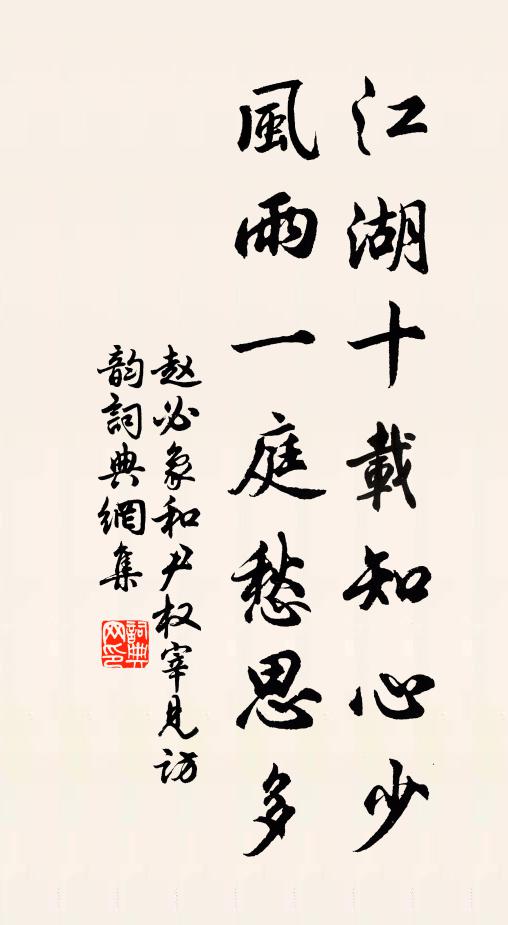 江湖十載知心少
風雨一庭愁思多
赵必象和尹权宰見访
韵詞典網集
詞典网印